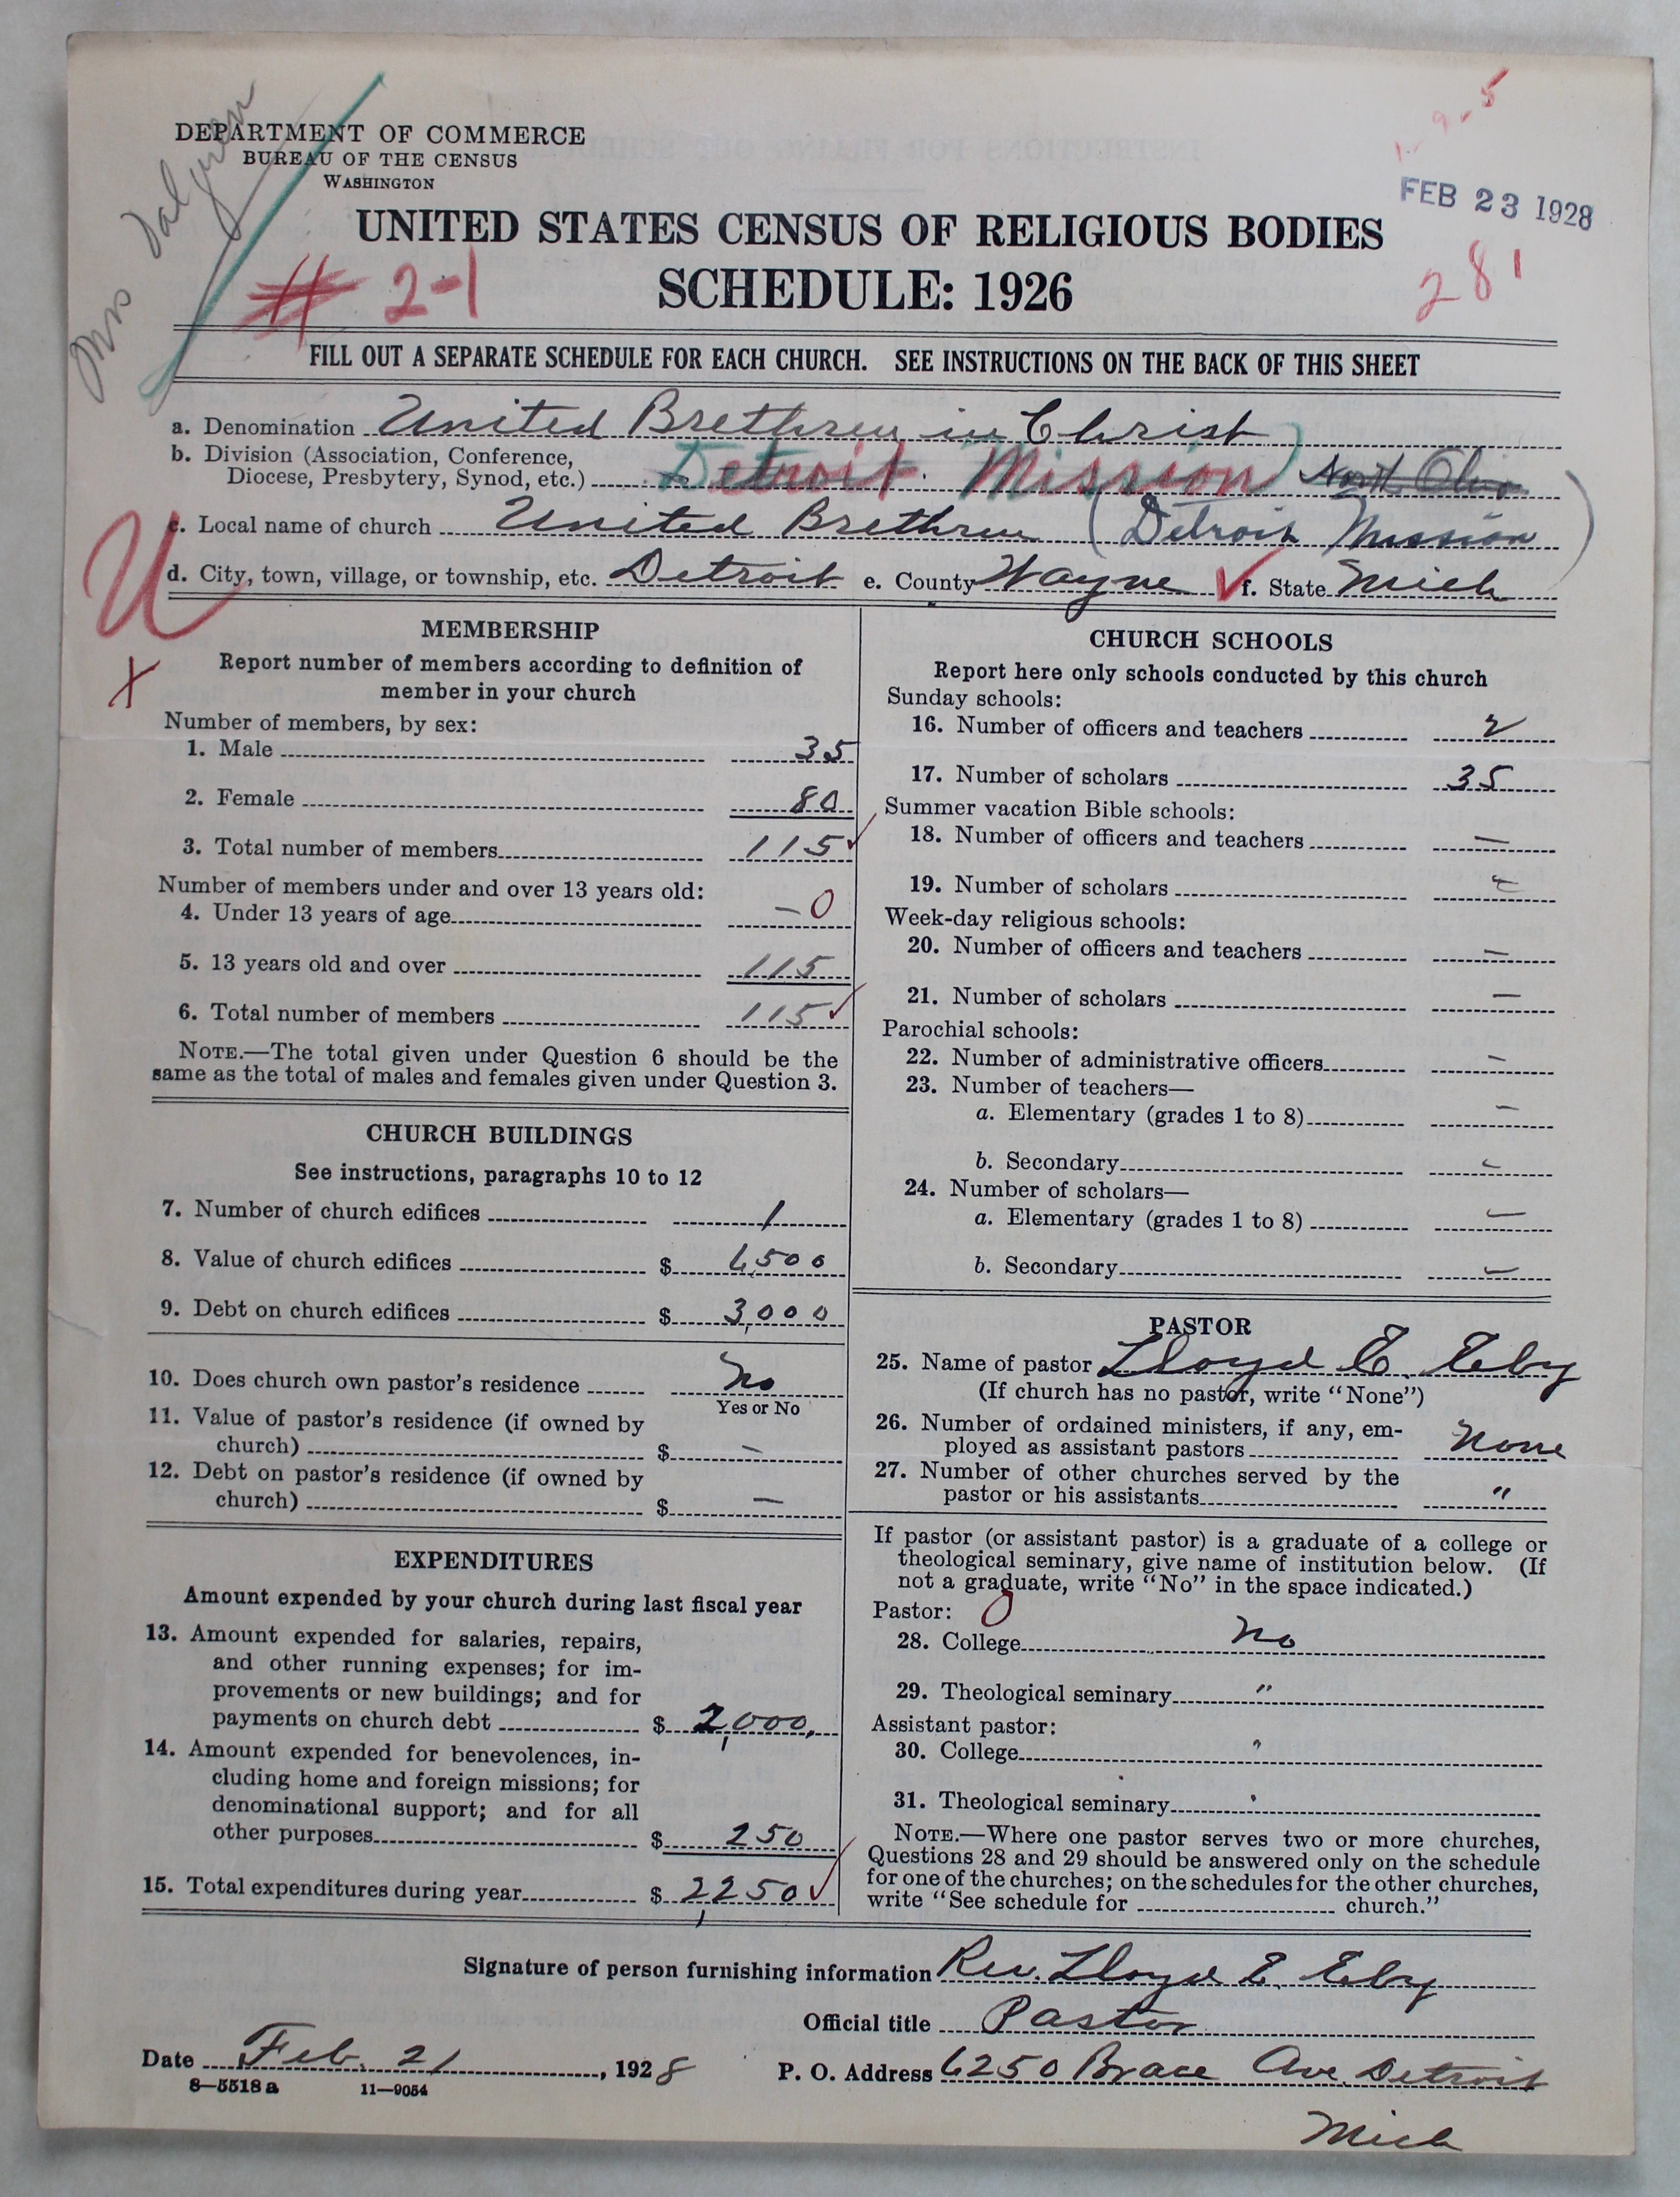 DEPARTMENT OF COMMERCE
BUREAU OF THE CENSUS
WASHINGTON
Mrs
FEB 23 1928
UNITED STATES CENSUS OF RELIGIOUS BODIES
# 2-1
SCHEDULE: 1926
281
FILL OUT A SEPARATE SCHEDULE FOR EACH CHURCH. SEE INSTRUCTIONS ON THE BACK OF THIS SHEET
a. Denomination United Brethren in Christ
b. Division (Association, Conference,
Diocese, Presbytery, Synod, etc.) Detroit Mission North Ohio
c. Local name of church United Brethren (Detroit Mission)
d. City, town, village, or township, etc. Detroit e. County Wayne f. State Mich
U
X
MEMBERSHIP
Report number of members according to definition of
member in your church
Number of members, by sex:
1. Male 35
2. Female 80
3. Total number of members 115
Number of members under and over 13 years old:
4. Under 13 years of age – 0
5. 13 years old and over 115
6. Total number of members 115
NOTE.—The total given under Question 6 should be the
same as the total of males and females given under Question 3.
CHURCH BUILDINGS
See instructions, paragraphs 10 to 12
7. Number of church edifices 1
8. Value of church edifices $ 6,500
9. Debt on church edifices $ 3,000
10. Does church own pastor's residence No
Yes or No
11. Value of pastor's residence (if owned by
church) $ –
12. Debt on pastor's residence (if owned by
church) $ –
EXPENDITURES
Amount expended by your church during last fiscal year
13. Amount expended for salaries, repairs,
and other running expenses; for im-
provements or new buildings; and for
payments on church debt $ 2,000.
14. Amount expended for benevolences, in-
cluding home and foreign missions; for
denominational support; and for all
other purposes $ 250
15. Total expenditures during year $ 2,250
CHURCH SCHOOLS
Report here only schools conducted by this church
Sunday schools:
16. Number of officers and teachers 2
17. Number of scholars 35
Summer vacation Bible schools:
18. Number of officers and teachers –
19. Number of scholars –
Week-day religious schools:
20. Number of officers and teachers –
21. Number of scholars –
Parochial schools:
22. Number of administrative officers –
23. Number of teachers—
a. Elementary (grades 1 to 8) –
b. Secondary –
24. Number of scholars—
a. Elementary (grades 1 to 8) –
b. Secondary –
PASTOR
25. Name of pastor Lloyd E. Eby
(If church has no pastor, write "None")
26. Number of ordained ministers, if any, em-
ployed as assistant pastors None
27. Number of other churches served by the
pastor or his assistants "
If pastor (or assistant pastor) is a graduate of a college or
theological seminary, give name of institution below. (If
not a graduate, write "No" in the space indicated.)
Pastor: 0
28. College No
29. Theological seminary "
Assistant pastor:
30. College "
31. Theological seminary "
NOTE.—Where one pastor serves two or more churches,
Questions 28 and 29 should be answered only on the schedule
for one of the churches; on the schedules for the other churches,
write "See schedule for church."
Signature of person furnishing information Rev. Lloyd E. Eby
Official title Pastor
Date Feb. 21, 1928 P. O. Address 6250 Brace Ave. Detroit
Mich
8—5518 a 11—9054